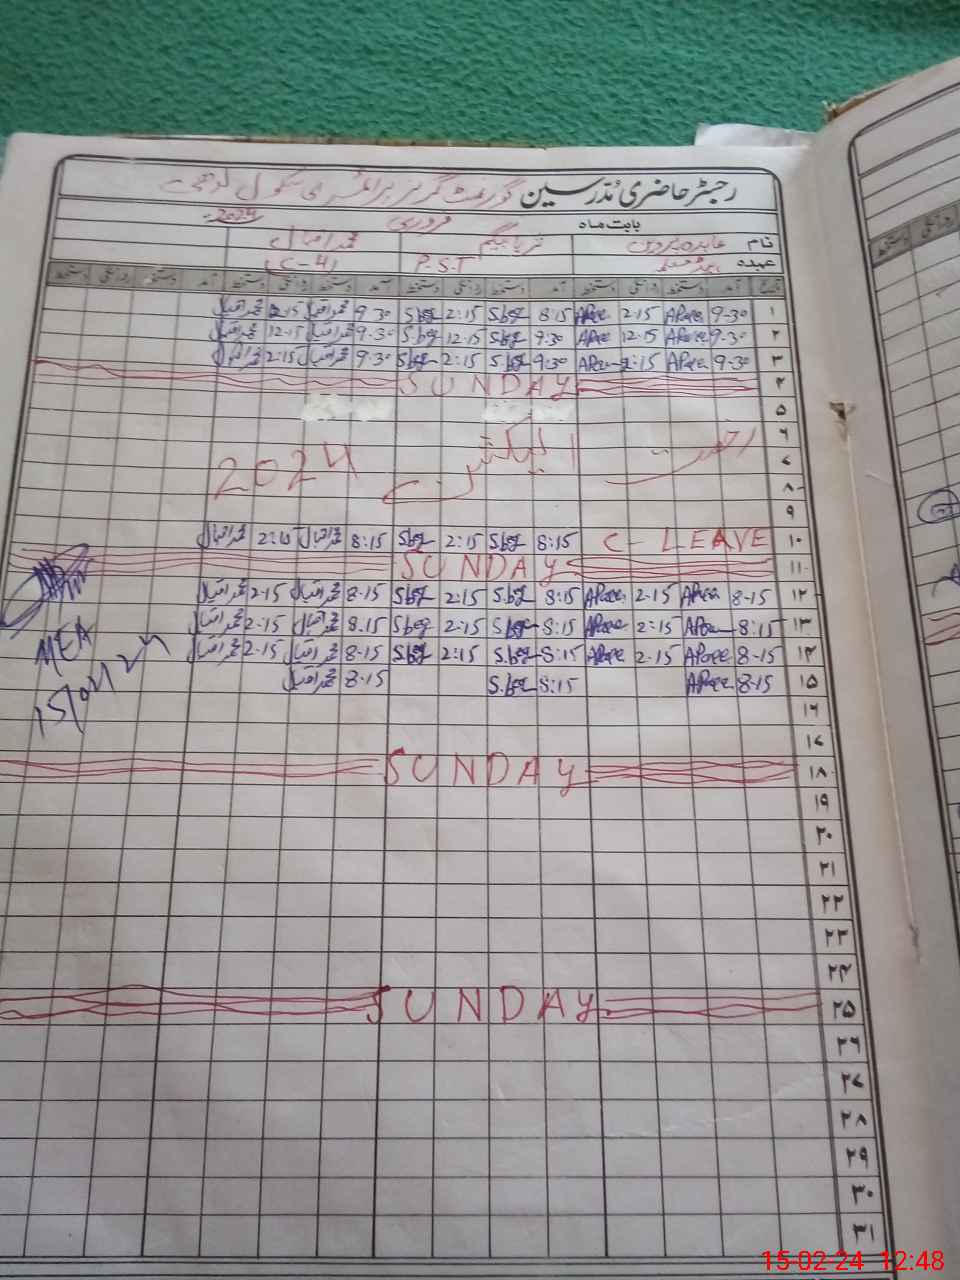 رجسٹر حاضری مدرسین گورنمنٹ گرلز پرائمری سکول
بابت ماہ فروری 2024
نام عابدہ پروین ثریا بیگم محمد اقبال
عہدہ ہیڈ معلمہ P.S.T (C-4)
تاریخ آمد دستخط روانگی دستخط آمد دستخط روانگی دستخط آمد دستخط روانگی دستخط آمد دستخط روانگی دستخط
۱ 9-30 APaee 2-15 APaee 8:15 S.beg 2:15 S.beg 9-30 محمد اقبال 2-15 محمد اقبال
۲ 9-30 APaee 12-15 APaee 9:30 S.beg 12-15 S.beg 9-30 محمد اقبال 12-15 محمد اقبال
۳ 9-30 APaee 2:15 APaee 9:30 S.beg 2-15 S.beg 9-30 محمد اقبال 2:15 محمد اقبال
۴ SUNDAY
۵
۶
۷ الیکشن 2024
۸
۹
۱۰ C-LEAVE 8:15 S.beg 2:15 S.beg 8:15 محمد اقبال 2:15 محمد اقبال
۱۱ SUNDAY
۱۲ 8-15 APaee 2-15 APaee 8:15 S.beg 2:15 S.beg 8-15 محمد اقبال 2-15 محمد اقبال
۱۳ 8:15 APaee 2:15 APaee 8:15 S.beg 2-15 S.beg 8.15 محمد اقبال 2-15 محمد اقبال
۱۴ 8-15 APaee 2-15 APaee 8:15 S.beg 2:15 S.beg 8-15 محمد اقبال 2-15 محمد اقبال
۱۵ 8-15 APaee 8:15 S.beg 8-15 محمد اقبال
MEA
15/02/24
۱۶
۱۷
۱۸ SUNDAY
۱۹
۲۰
۲۱
۲۲
۲۳
۲۴
۲۵ SUNDAY
۲۶
۲۷
۲۸
۲۹
۳۰
۳۱
15-02-24 12:48